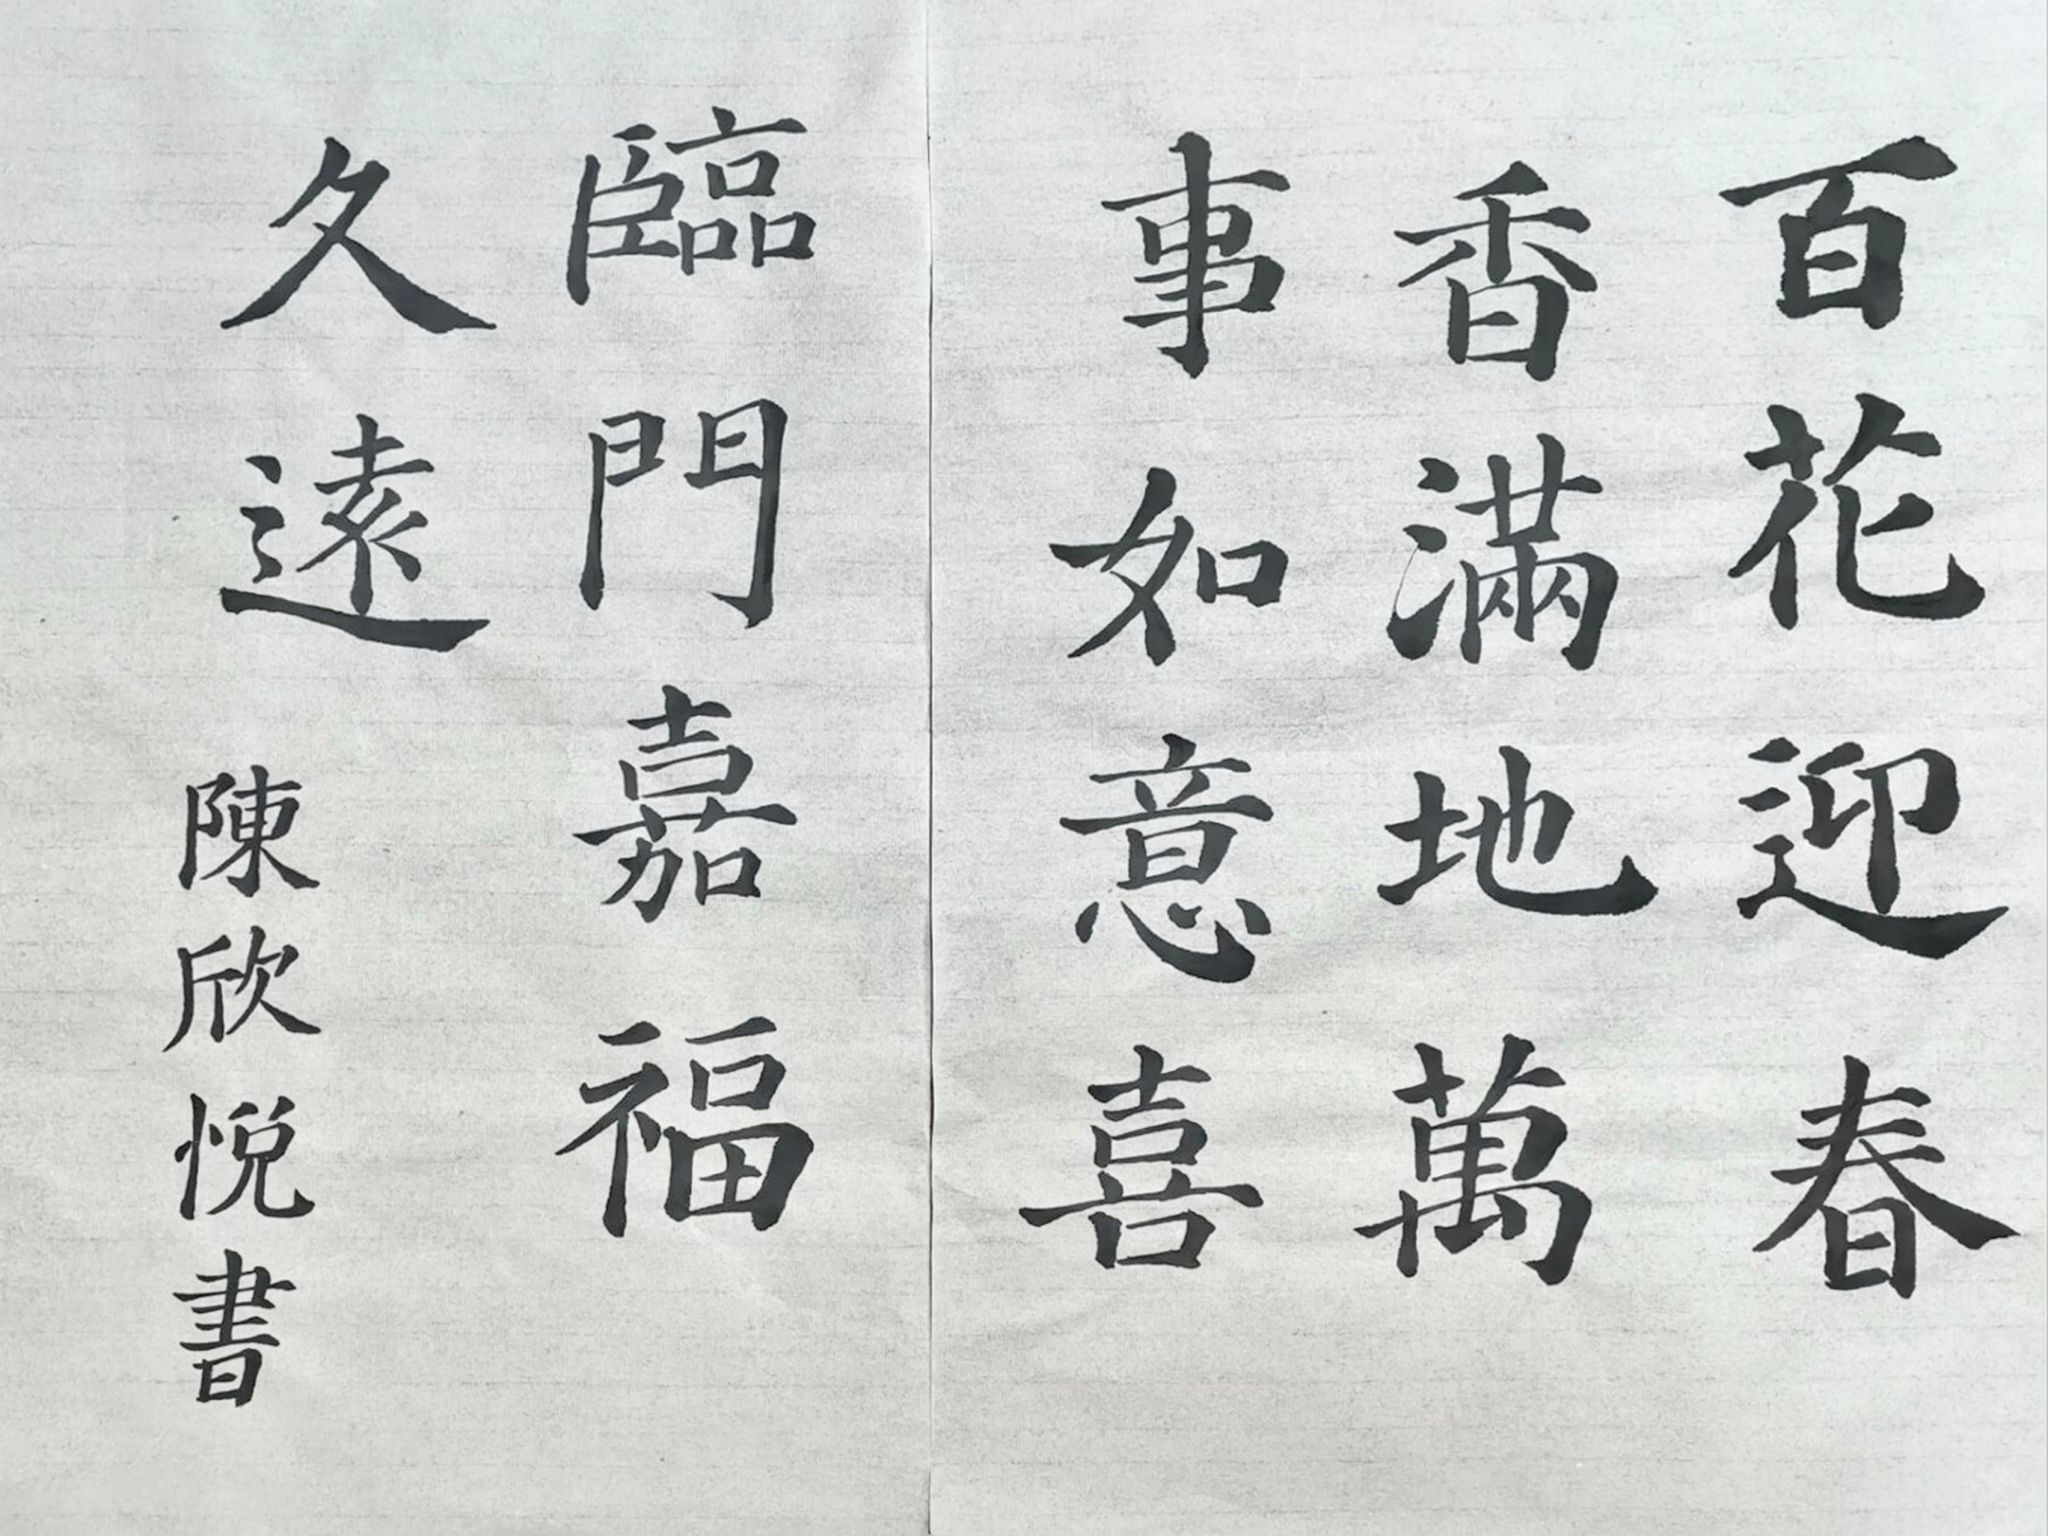 百花迎春
香滿地萬
事如意喜
臨門嘉福
久遠
陳欣悅書